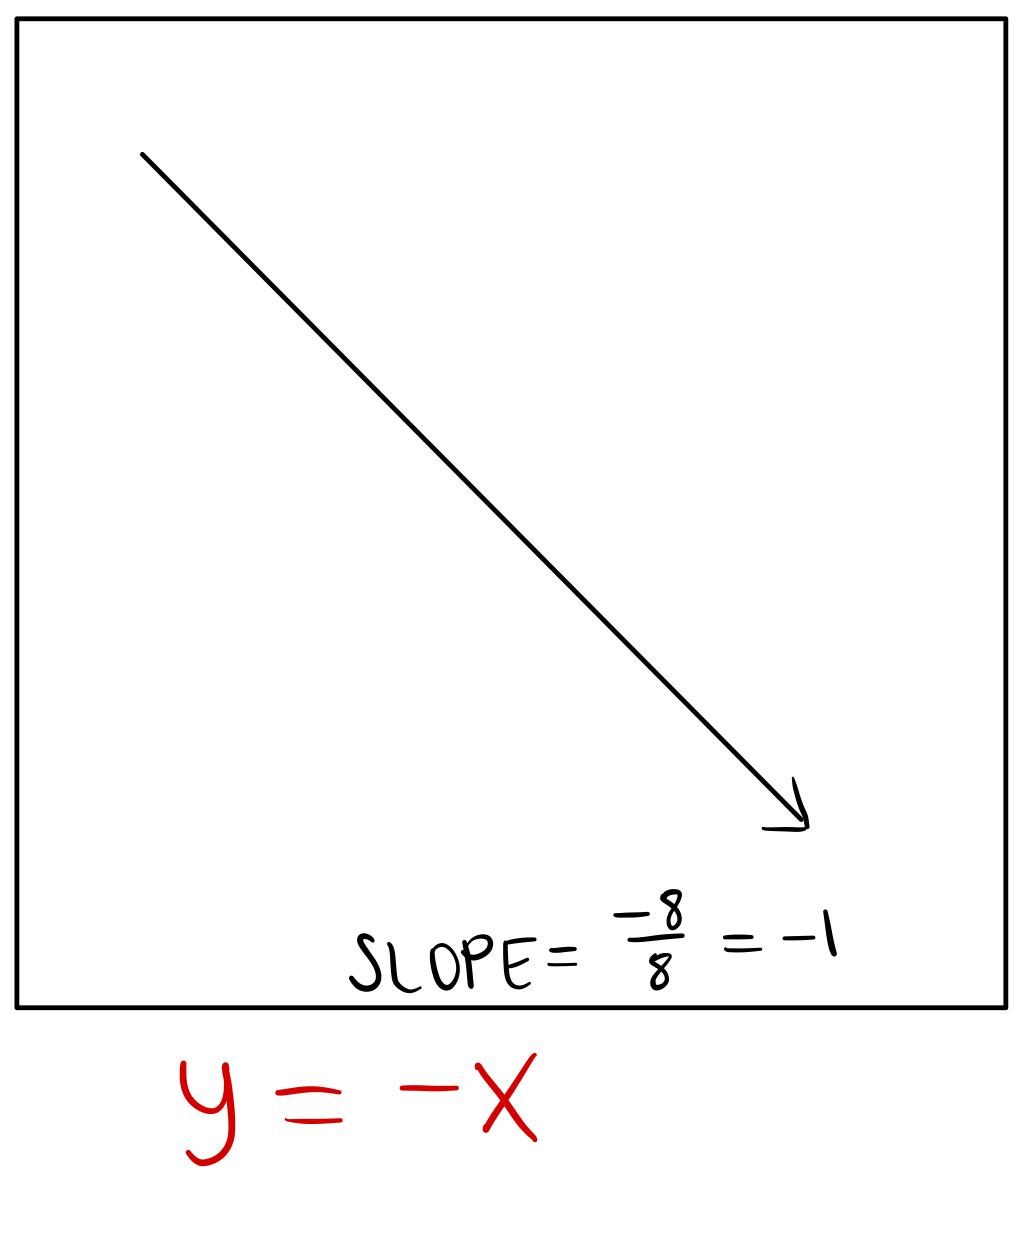 SLOPE = -8/8 = -1
y = -x